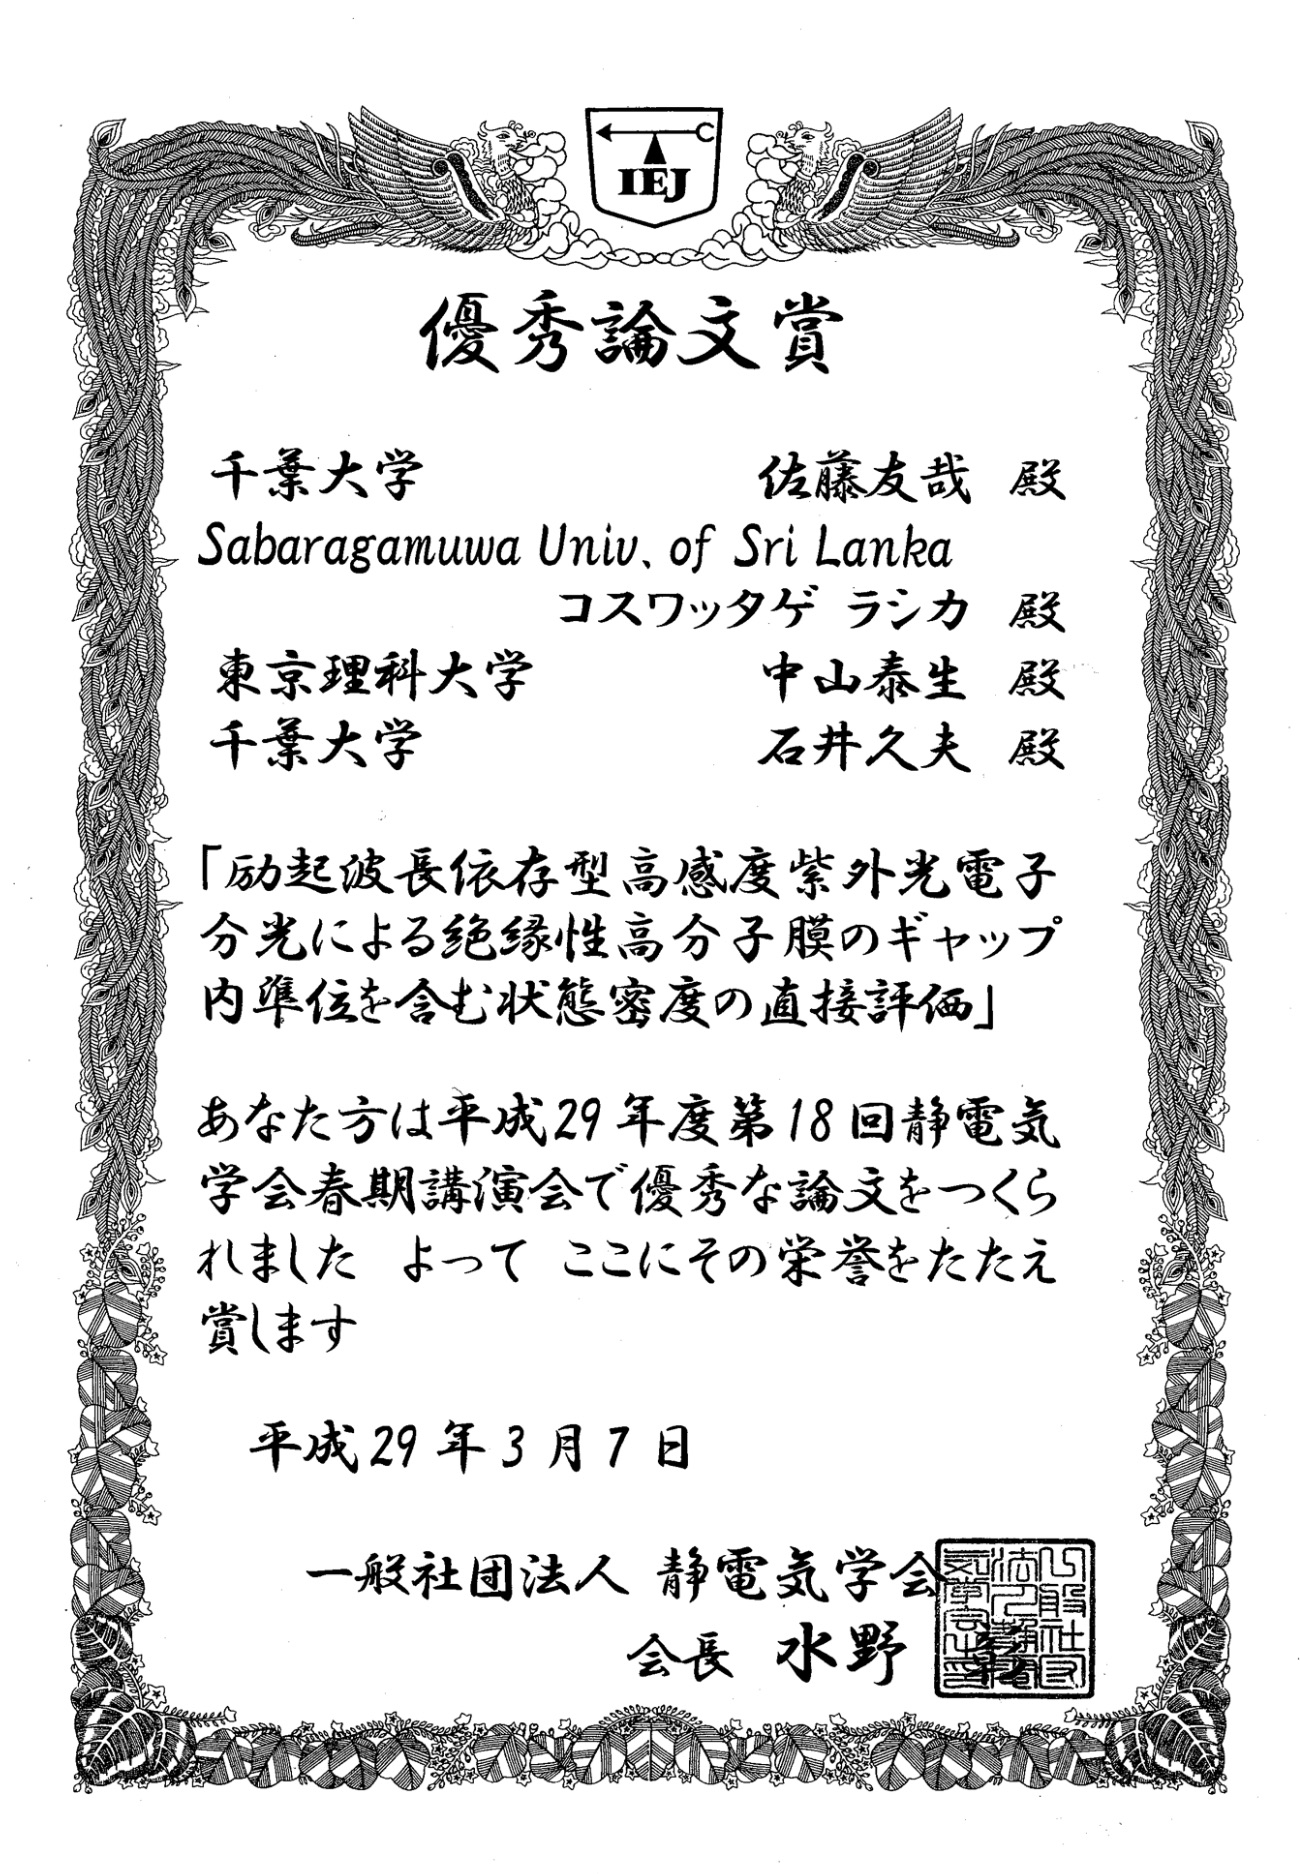 IEJ
優秀論文賞
千葉大学 佐藤友哉 殿
Sabaragamuwa Univ. of Sri Lanka
コスワッタゲ ラシカ 殿
東京理科大学 中山泰生 殿
千葉大学 石井久夫 殿
「励起波長依存型高感度紫外光電子
分光による絶縁性高分子膜のギャップ
内準位を含む状態密度の直接評価」
あなた方は平成29年度第18回静電気
学会春期講演会で優秀な論文をつくら
れました よって ここにその栄誉をたたえ
賞します
平成29年3月7日
一般社団法人 静電気学会
会長 水野